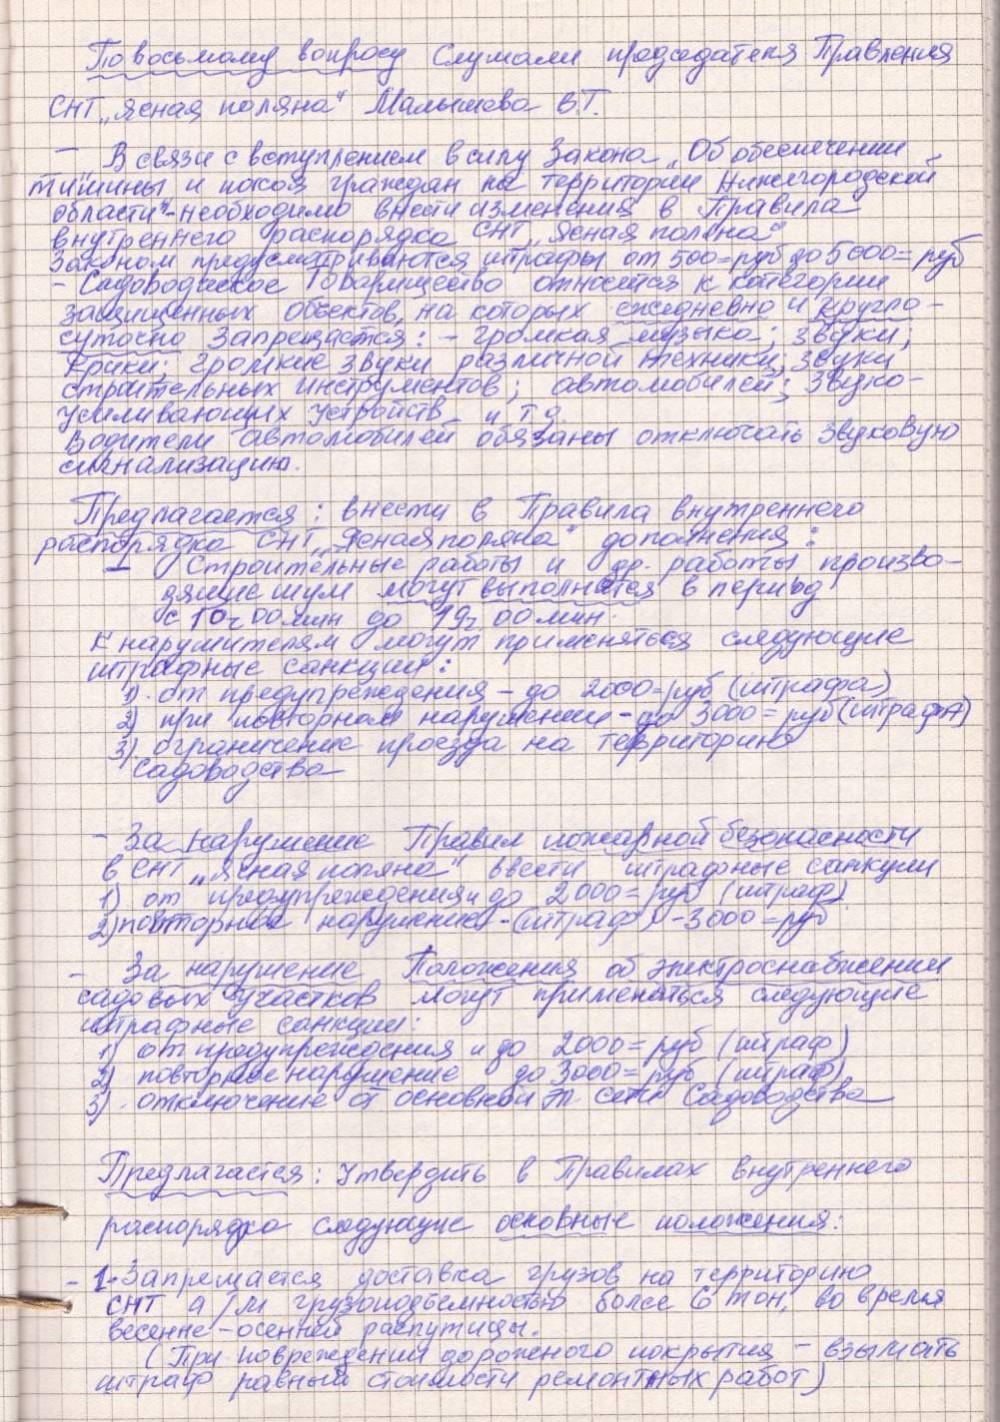 По восьмому вопросу Слушали председателя Правления
СНТ „Ясная поляна" Малышева В.Г.
- В связи с вступлением в силу Закона „Об обеспечении
тишины и покоя граждан на территории Нижегородской
области" - необходимо внести изменения в Правила
внутреннего распорядка СНТ „Ясная поляна"
Законом предусматриваются штрафы от 500= руб до 5000= руб
- Садоводческое Товарищество относится к категории
защищенных объектов, на которых ежедневно и кругло-
суточно Запрещается: - громкая музыка; звуки;
крики; громкие звуки различной техники; звуки
строительных инструментов; автомобилей; звуко-
усиливающих устройств и т.д.
Водители автомобилей обязаны отключать звуковую
сигнализацию.
Предлагается: внести в Правила внутреннего
распорядка СНТ „Ясная поляна" дополнения:
- Строительные работы и др. работы произво-
дящие шум могут выполнятся в период
с 10ч 00мин до 19ч 00мин.
К нарушителям могут применяться следующие
штрафные санкции:
1). от предупреждения - до 2000= руб (штрафа)
2) при повторном нарушении - до 3000= руб (штрафа)
3). ограничение проезда на территорию
Садоводства
- За нарушение Правил пожарной безопасности
в СНТ „Ясная поляна" ввести штрафные санкции
1) от предупреждения и до 2000= руб (штраф)
2) повторное нарушение - (штраф) - 3000= руб
- За нарушение Положения об электроснабжении
садовых участков могут применяться следующие
штрафные санкции:
1) от предупреждения и до 2000= руб (штраф)
2) повторное нарушение до 3000= руб (штраф)
3). отключение от основной эл. сети Садоводства
Предлагается: Утвердить в Правилах внутреннего
распорядка следующие основные положения:
- 1. Запрещается доставка грузов на территорию
СНТ а/м грузоподъемностью более 6 тон, во время
весенне-осенней распутицы.
(При повреждении дорожного покрытия - взымать
штраф равный стоимости ремонтных работ)